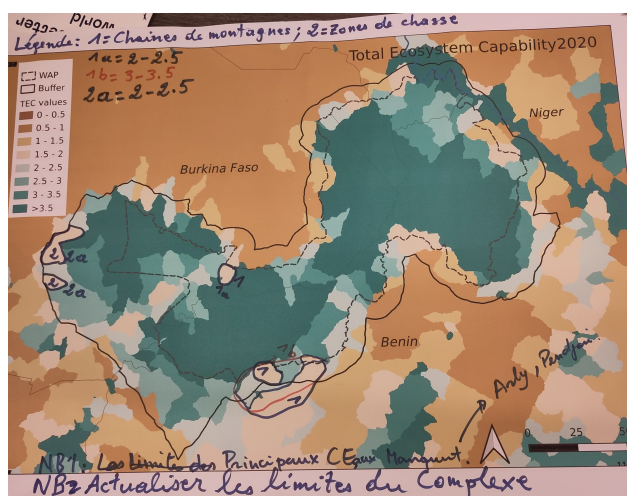 Légende: 1=Chaines de montagnes; 2=Zones de chasse
1a = 2-2.5
1b = 3-3.5
2a = 2-2.5
Total Ecosystem Capability2020
WAP
Buffer
TEC values
0 - 0.5
0.5 - 1
1 - 1.5
1.5 - 2
2 - 2.5
2.5 - 3
3 - 3.5
>3.5
Burkina Faso
Niger
2 2a
2 2a
1
1a
1
1
Benin
Arly, Pendjari
0 25
NB1: Les Limites des Principaux CEaux Manquent.
NB2 Actualiser les limites du Complexe